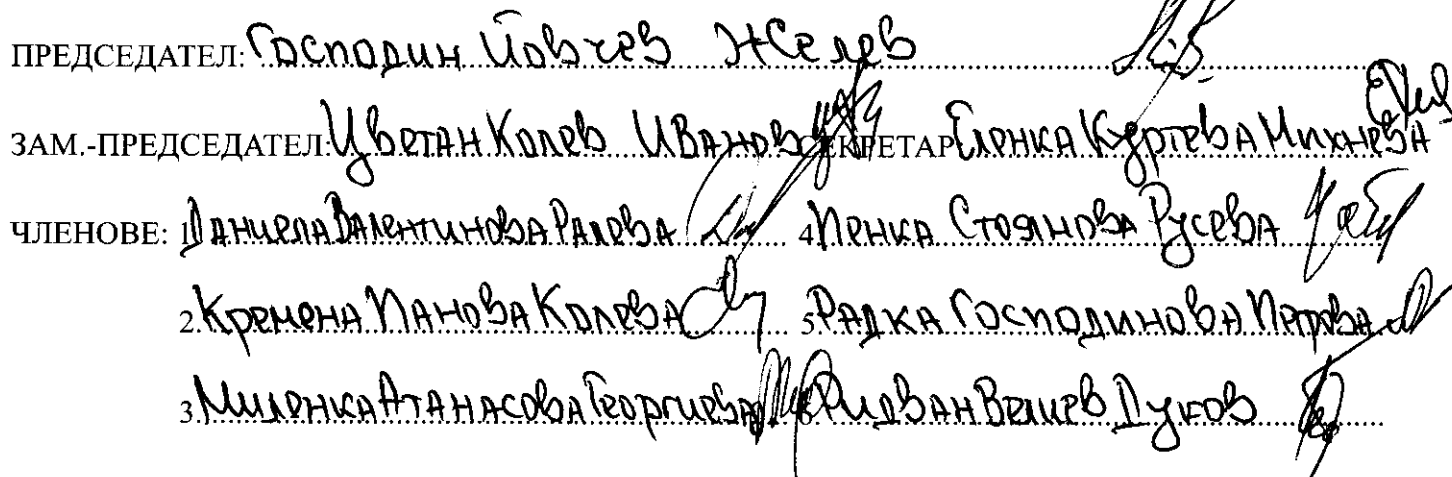 ПРЕДСЕДАТЕЛ: Господин Йовчев Желев
ЗАМ.-ПРЕДСЕДАТЕЛ: Цветан Колев Иванов СЕКРЕТАР Еленка Куртева Михнева
ЧЛЕНОВЕ: 1. Даниела Валентинова Ралева 4. Пенка Стоянова Русева
2. Кремена Панова Колева 5. Радка Господинова Петрова
3. Миленка Атанасова Георгиева 6. Ридван Велиев Дуков